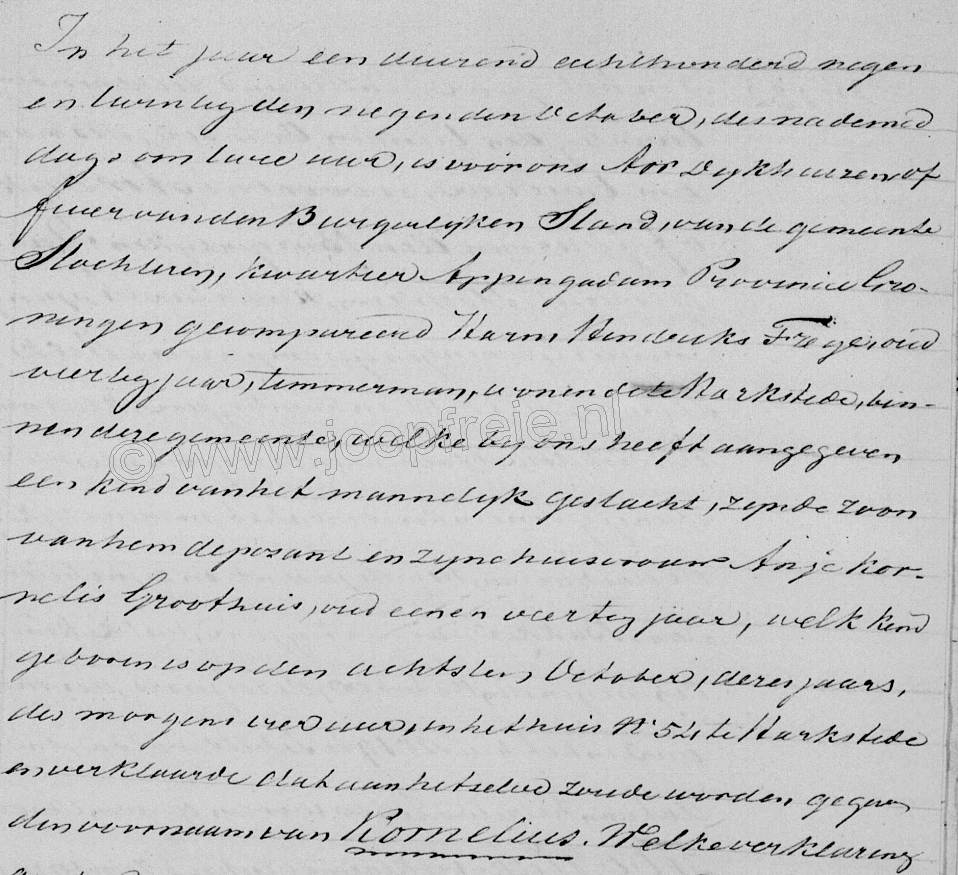 In het jaar een duizend achthonderd negen
en twintig den negenden October, des nademid
dags om twee uur, is voor ons Dykhuizen of
ficier van den Burgerlyken Stand, van de gemeente
Slochteren, kwartier Appingadam Provincie Gro-
ningen gecompareerd Harm Hendriks oud
veertig jaar, timmerman, wonende te Harkstede, bin-
nen deze gemeente, welke by ons heeft aangegeven
© www.joopfreie.nl
een kind van het mannelyk geslacht, zynde zoon
van hem deposant en zyne huisvrouw Anje Kor-
nelis Groothuis, oud een en veertig jaar, welk kind
geboren is op den achtsten October, dezes jaars,
des morgens vier uur, in het huis N 54 te Harkstede
en verklaarde dat aan hetselve zoude worden gegeven
den voornaam van Kornelius. Welke verklaring